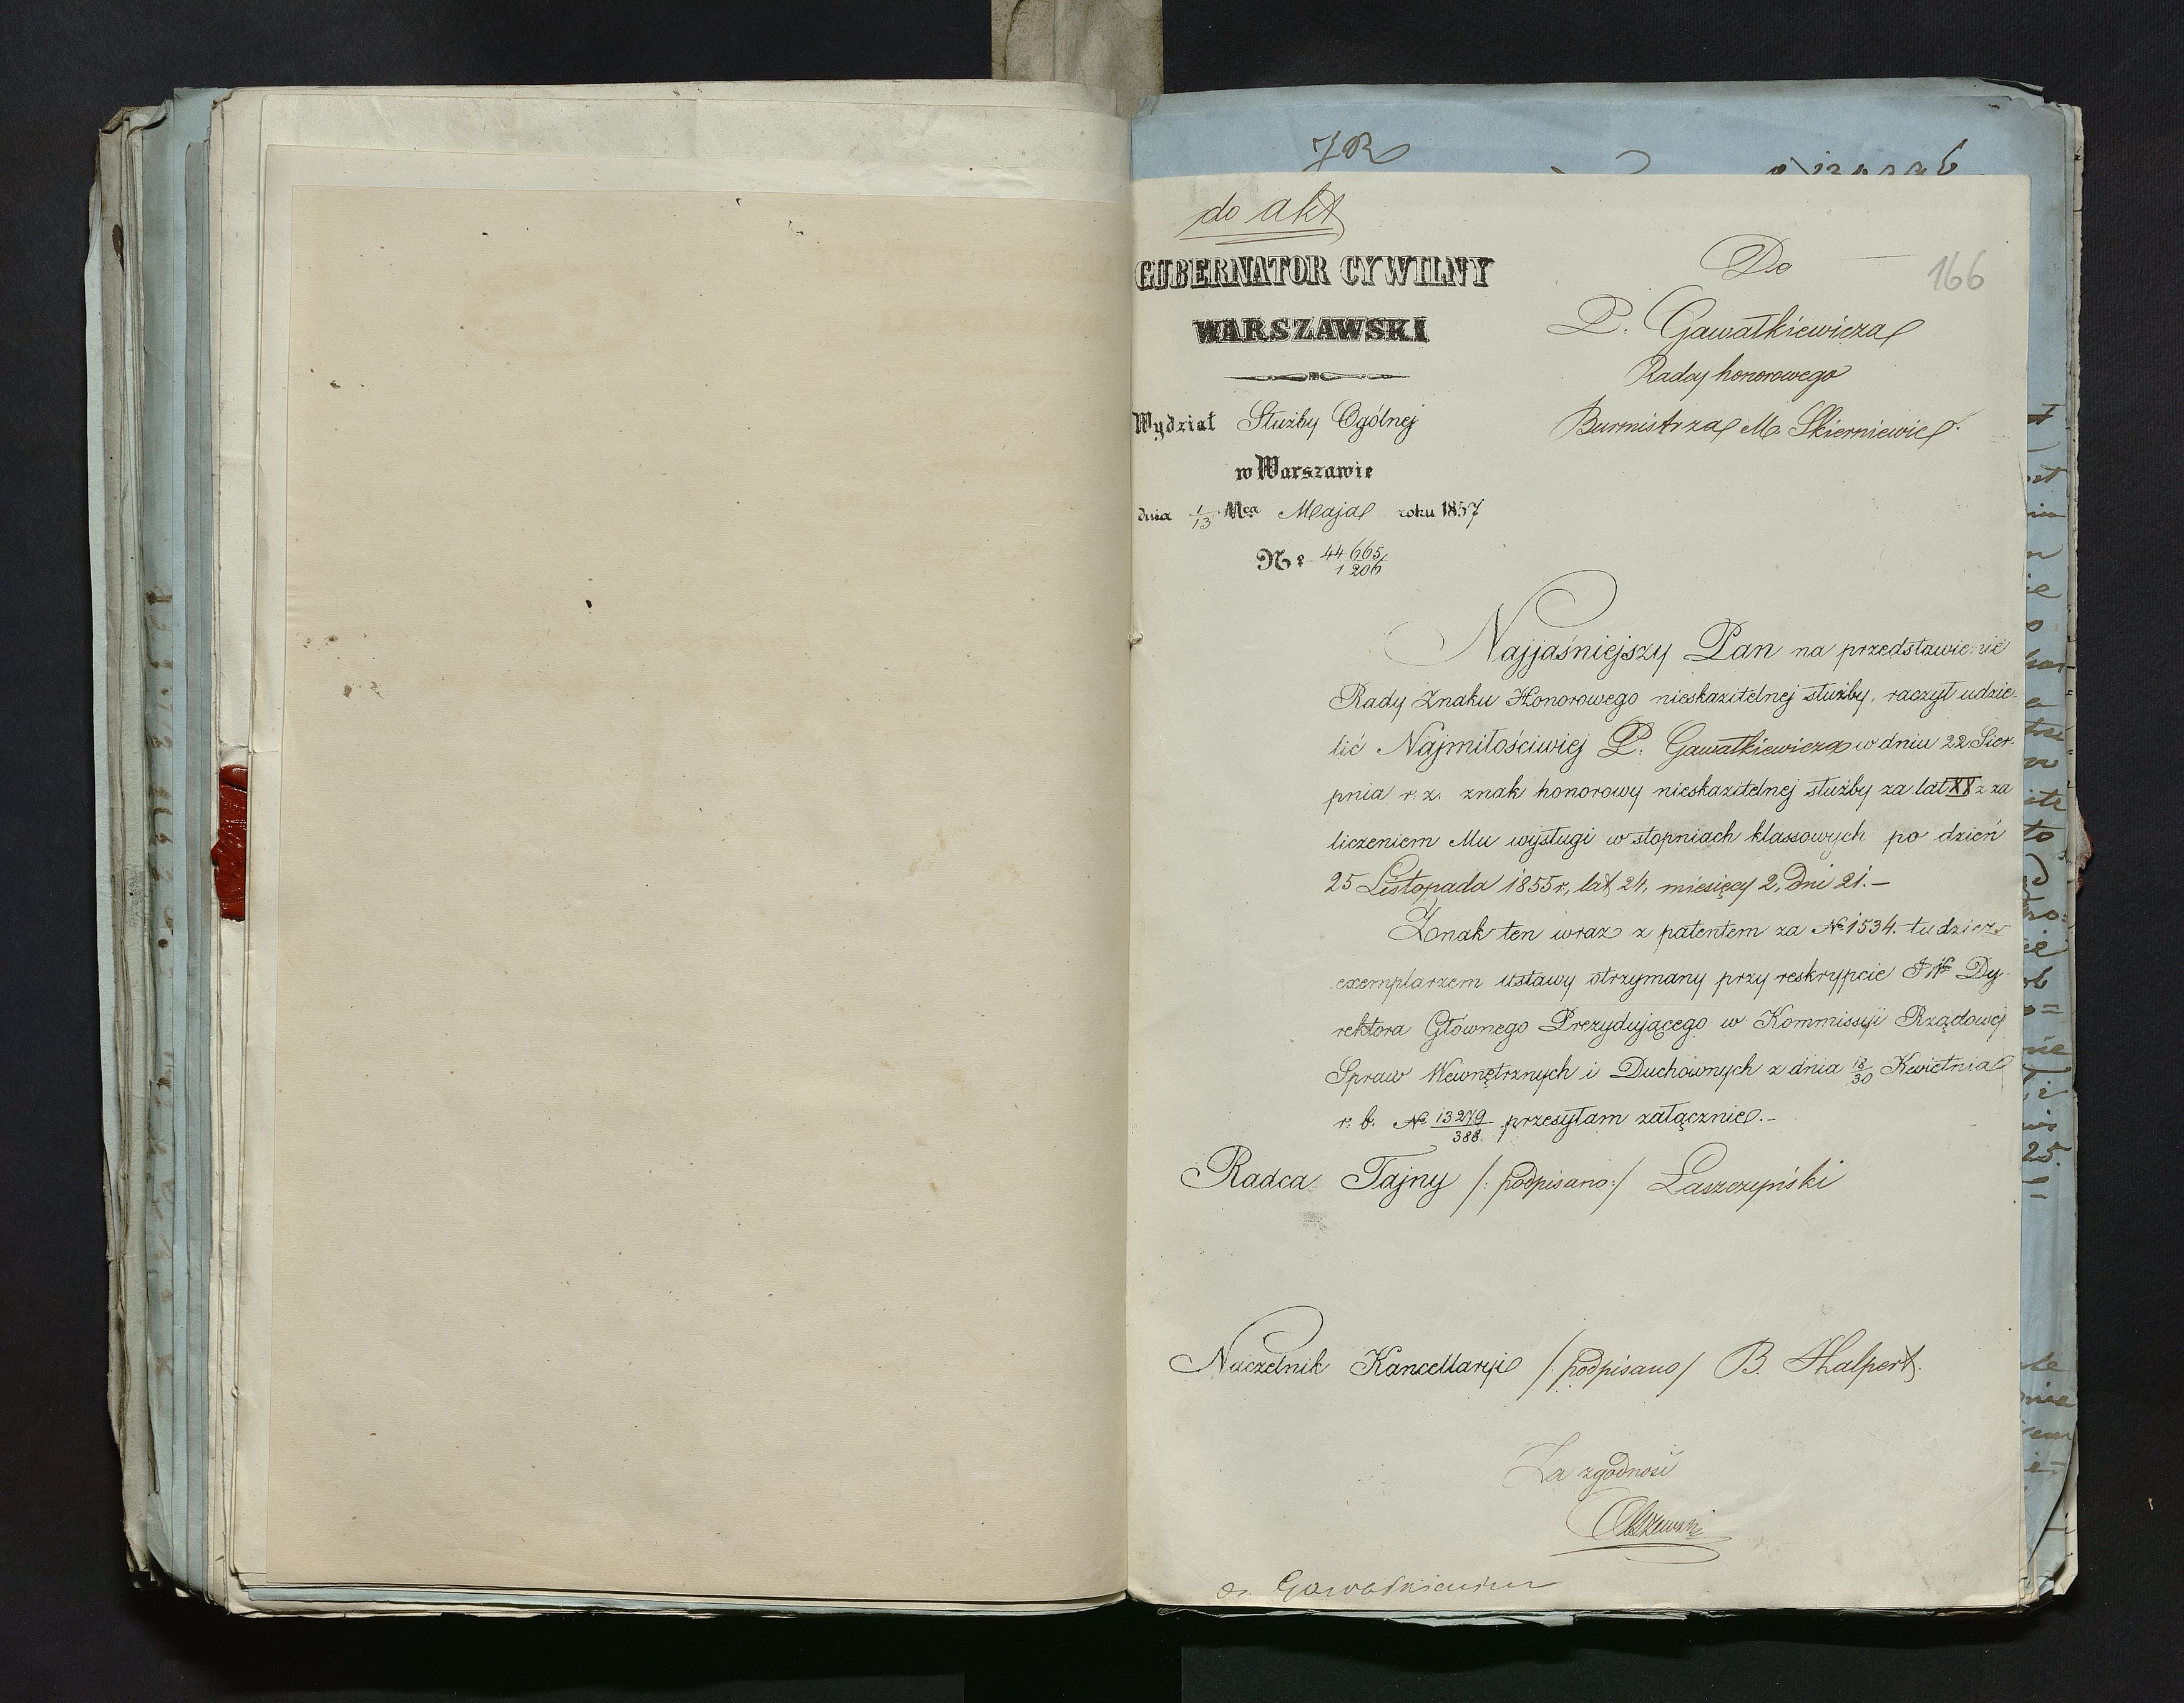 do akt
GUBERNATOR CYWILNY
WARSZAWSKI
Wydział Służby Ogólnej
w Warszawie
dnia 1/13 Mca Maja roku 1857
No 44665/1206
Do
166
P. Gawałkiewicza
Radcy honorowego
Burmistrza M. Skierniewic
Najjaśniejszy Pan na przedstawienie
Rady Znaku Honorowego nieskazitelnej służby, raczył udzie-
lić Najmiłościwiej P. Gawałkiewicza w dniu 22 Sier-
pnia r. z. znak honorowy nieskazitelnej służby za lat XX z za
liczeniem Mu wysługi w stopniach klassowych po dzień
25 Listopada 1855 r, lat 24, miesięcy 2, dni 21.-
Znak ten wraz z patentem za No 1534. tudzież
exemplarzem ustawy otrzymany przy reskrypcie Dy-
rektora Głównego Prezydującego w Kommissyi Rządowej
Spraw Wewnętrznych i Duchownych z dnia 18/30 Kwietnia
r. b. No 13279/388 przesyłam załącznie.-
Radca Tajny /:podpisano:/ Łaszczyński
Naczelnik Kancellaryi /:podpisano/ B. Halpert.
Za zgodność